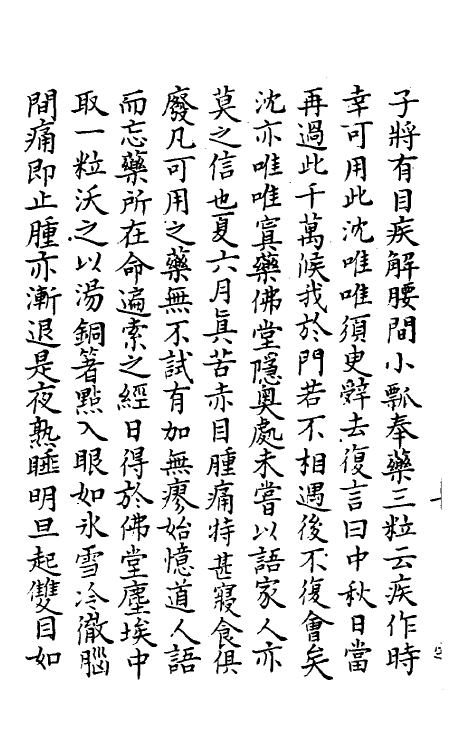 子將有目疾解腰間小瓢奉藥三粒云疾作時
幸可用此沈唯唯須更辭去復言曰中秋日當
再過此千萬候我於門若不相遇後不復會矣
沈亦唯唯寘藥佛堂隱奧處未嘗以語家人亦
莫之信也夏六月眞苦赤目腫痛特甚寢食俱
廢凡可用之藥無不試有加無瘳始憶道人語
而忘藥所在命遍索之經日得於佛堂塵埃中
取一粒沃之以湯銅箸點入眼如氷雪冷徹腦
間痛即止腫亦漸退是夜熟睡明旦起雙目如